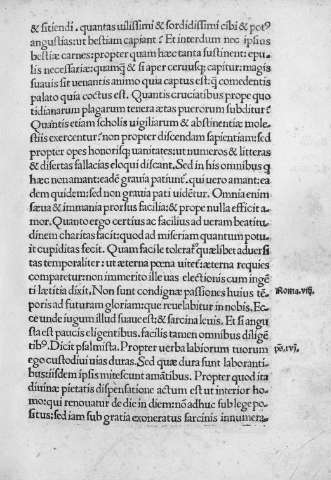 & sitiendi. quantas uilissimi & sordidissimi cibi & pot⁹
angustias: ut bestiam capiant? Et interdum nec ipsius
bestiæ carnes: propter quam hæc tanta sustinent: epu-
lis necessariæ: quāmq̄ & si aper ceruusq; capitur: magis
suauis sit uenantis animo quia captus est: q̄ comedentis
palato quia coctus est. Quantis cruciatibus prope quo
tidianarum plagarum tenera ætas puerorum subditur?
Quātis etiam scholis uigiliarum & abstinentiæ mole-
stiis exercentur? non propter discendam sapientiam: sed
propter opes honorisq; uanitates: ut numeros & litteras
& disertas fallacias eloqui discant. Sed in his omnibus q
hæc non amant: eadē grauia patiunt. qui uero amant: ea
dem quidem: sed non grauia pati uidētur. Omnia enim
sæua & immania prorsus facilia: & prope nulla efficit a-
mor. Quanto ergo certius ac facilius ad ueram beatitu-
dinem charitas facit: quod ad miseriam quantum potu-
it cupiditas fecit. Quam facile tolerat q̄elibet aduersi
tas temporaliter: ut æterna pœna uitet: æterna requies
comparetur: non immerito ille uas electionis cum ingē
ti lætitia dixit. Non sunt condignæ passiones huius tē-
poris ad futuram gloriam: que reuelabitur in nobis. Ec-
ce unde iugum illud suaue est: & sarcina leuis. Et si angu
sta est paucis eligentibus. facilis tamen omnibus diligē
tib⁹. Dicit psalmista. Propter uerba labiorum tuorum
ego custodiui uias duras. Sed quæ dura sunt laboranti-
bus: iisdem ipsis mitescunt amātibus. Propter quod ita
diuinæ pietatis dispēsatione actum est ut interior ho-
mo: qui renouatur de die in diem: nō adhuc sub lege po-
situs: sed iam sub gratia exoneratus sarcinis innumera-
Roma.